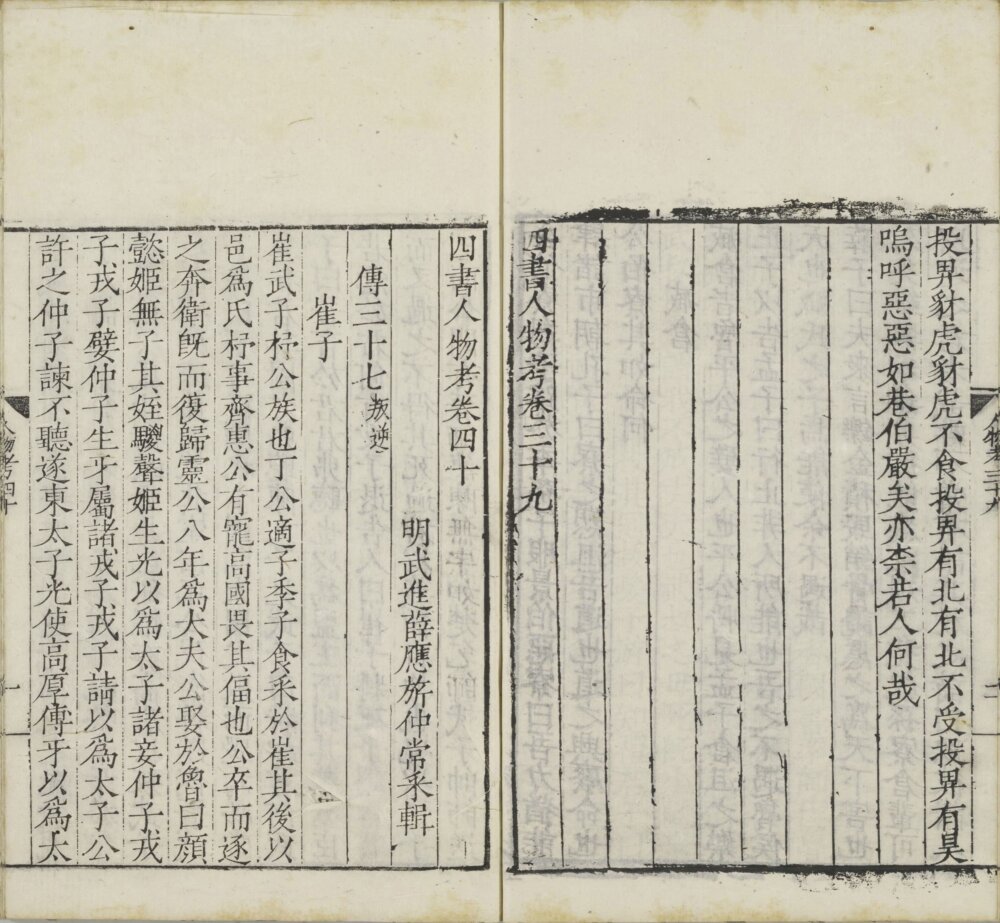 投畀豺虎豺虎不食投畀有北有北不受投畀有昊
嗚呼惡惡如巷伯嚴矣亦柰若人何哉
四書人物考卷三十九
四書人物考卷四十
明武進薛應旂仲常采輯
傳三十七叛逆
崔子
崔武子杼公族也丁公適子季子食采於崔其後以
邑爲氏杼事齊惠公有寵高國畏其偪也公卒而逐
之奔衛旣而復歸靈公八年爲大夫公娶於魯曰顔
懿姬無子其姪鬷聲姬生光以爲太子諸妾仲子戎
子戎子嬖仲子生牙屬諸戎子戎子請以爲太子公
許之仲子諫不聽遂東太子光使高厚傅牙以爲太
人物考四十
一